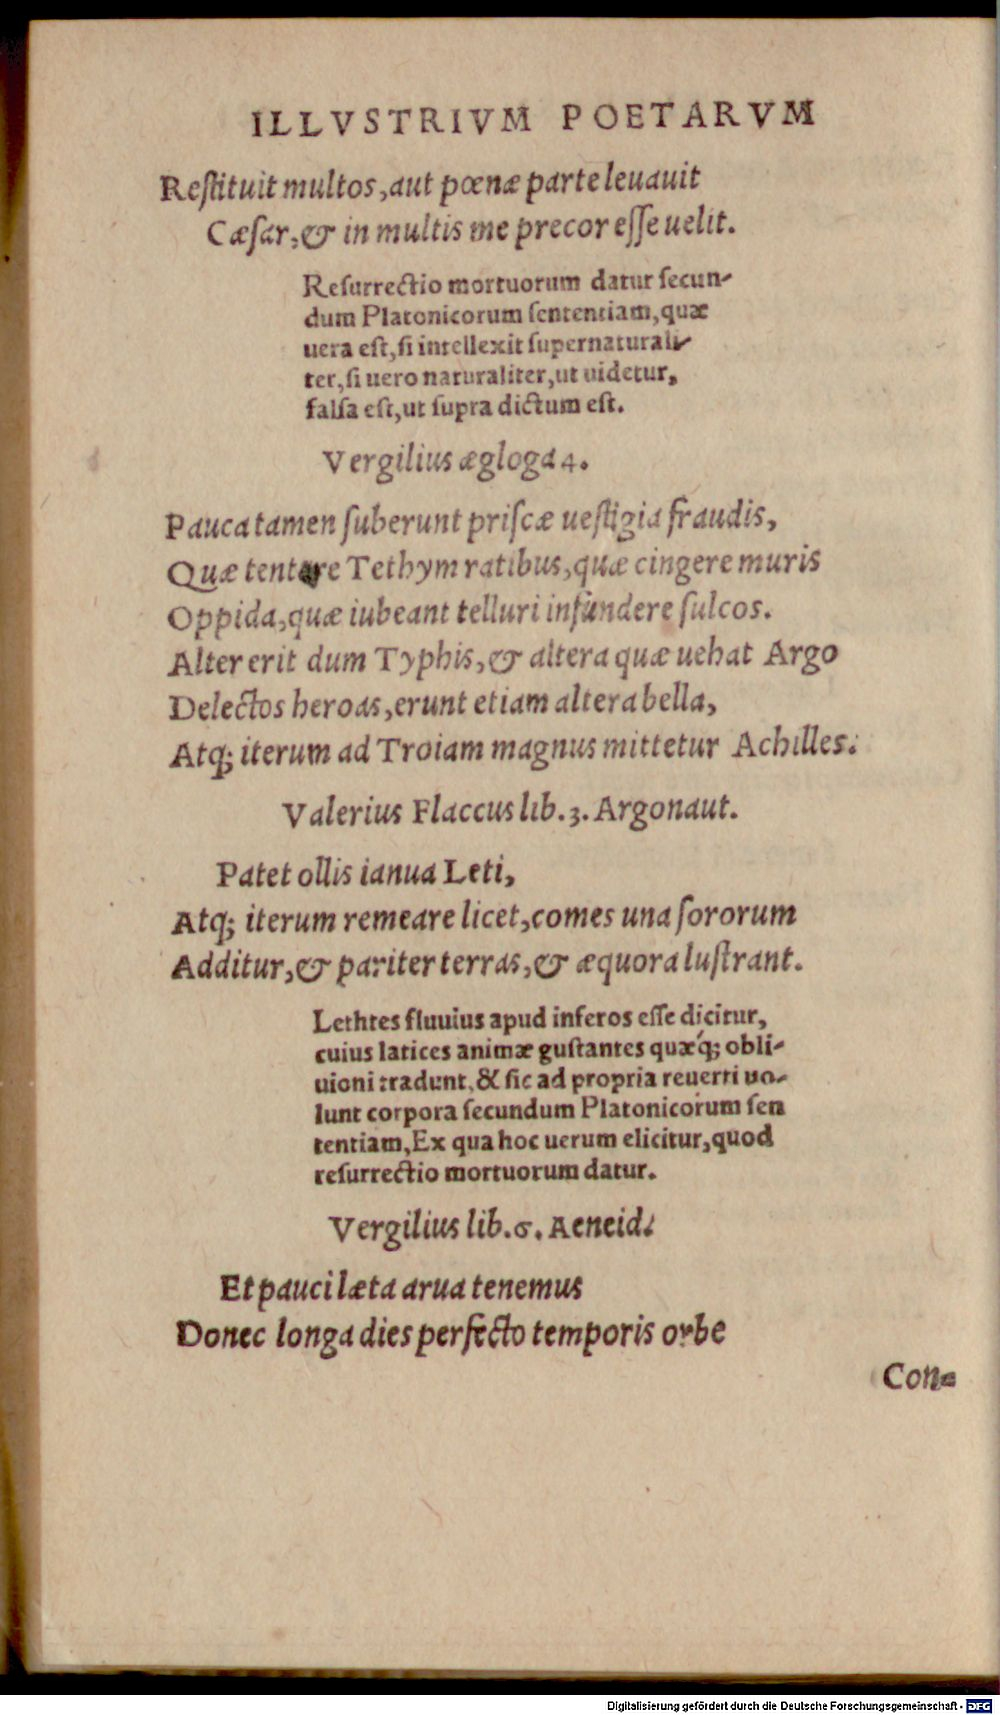 ILLVSTRIVM POETARVM
Restituit multos, aut pœnæ parte leuauit
Cæsar, & in multis me precor esse uelit.
Resurrectio mortuorum datur secun-
dum Platonicorum sententiam, quæ
uera est, si intellexit supernaturali-
ter, si uero naturaliter, ut uidetur,
falsa est, ut supra dictum est.
Vergilius ægloga 4.
Pauca tamen suberunt priscæ uestigia fraudis,
Quæ tentare Tethym ratibus, quæ cingere muris
Oppida, quæ iubeant telluri infundere sulcos.
Alter erit dum Typhis, & altera quæ uehat Argo
Delectos heroas, erunt etiam altera bella,
Atq; iterum ad Troiam magnus mittetur Achilles.
Valerius Flaccus lib. 3. Argonaut.
Patet ollis ianua Leti,
Atq; iterum remeare licet, comes una sororum
Additur, & pariter terras, & æquora lustrant.
Lethtes fluuius apud inferos esse dicitur,
cuius latices animæ gustantes quæq́; obli-
uioni tradunt, & sic ad propria reuerti uo-
lunt corpora secundum Platonicorum sen
tentiam, Ex qua hoc uerum elicitur, quod
resurrectio mortuorum datur.
Vergilius lib. 6. Aeneid.
Et pauci læta arua tenemus
Donec longa dies perfecto temporis orbe
Con-
Digitalisierung gefördert durch die Deutsche Forschungsgemeinschaft - DFG